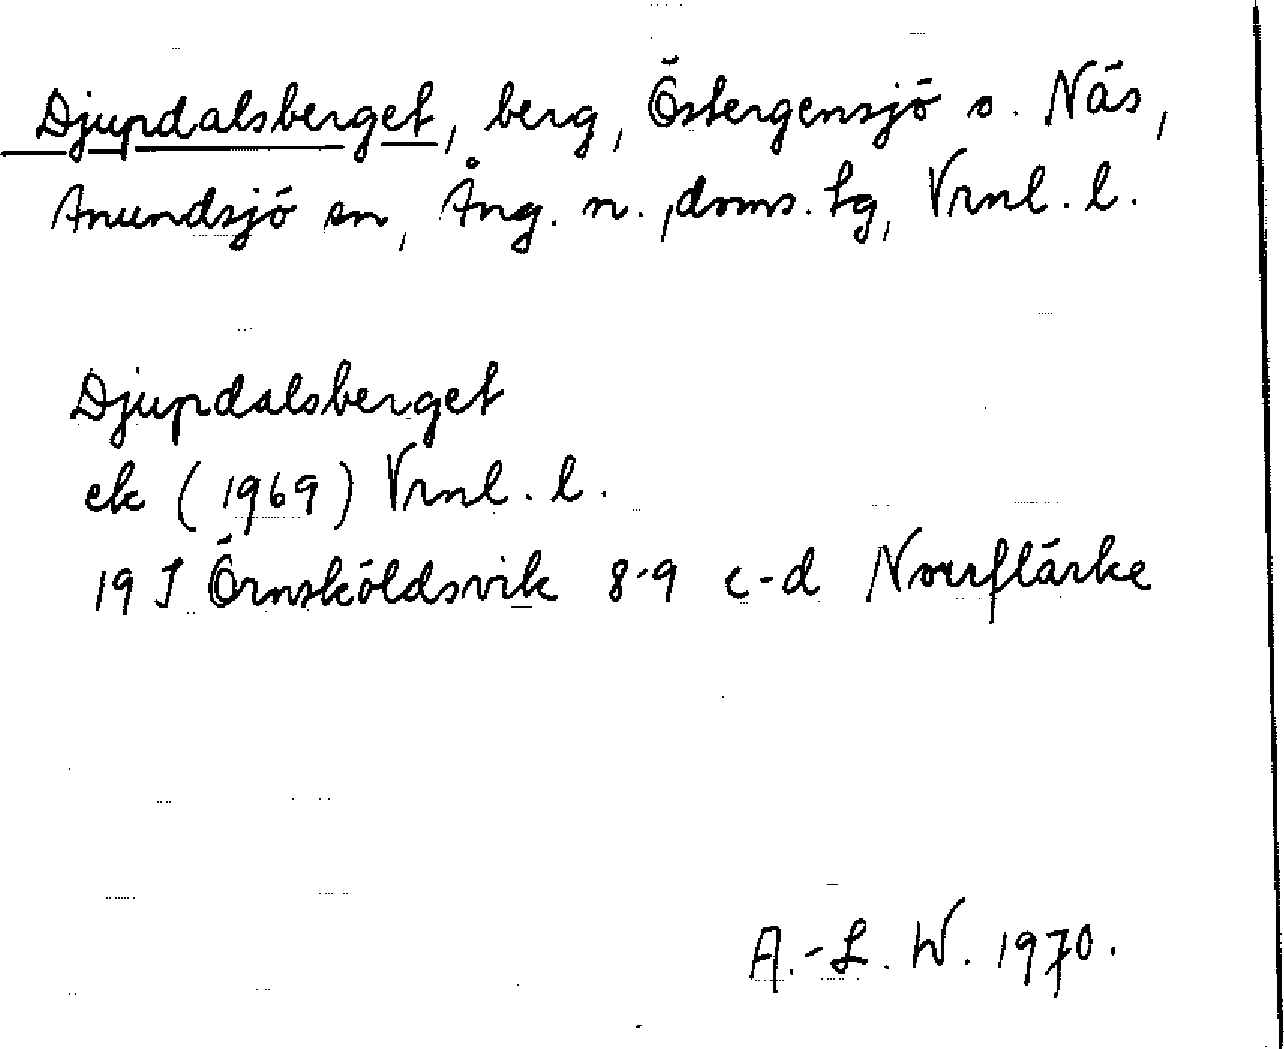 Djupdalsberget, berg, Östergensjö o. Näs,
Anundsjö sn, Ång. n. doms. tg, Vrnl. l.
Djupdalsberget
ek (1969) Vrnl. l.
19 J Örnsköldsvik 8-9 c-d Norrflärke
A.-L. W. 1970.